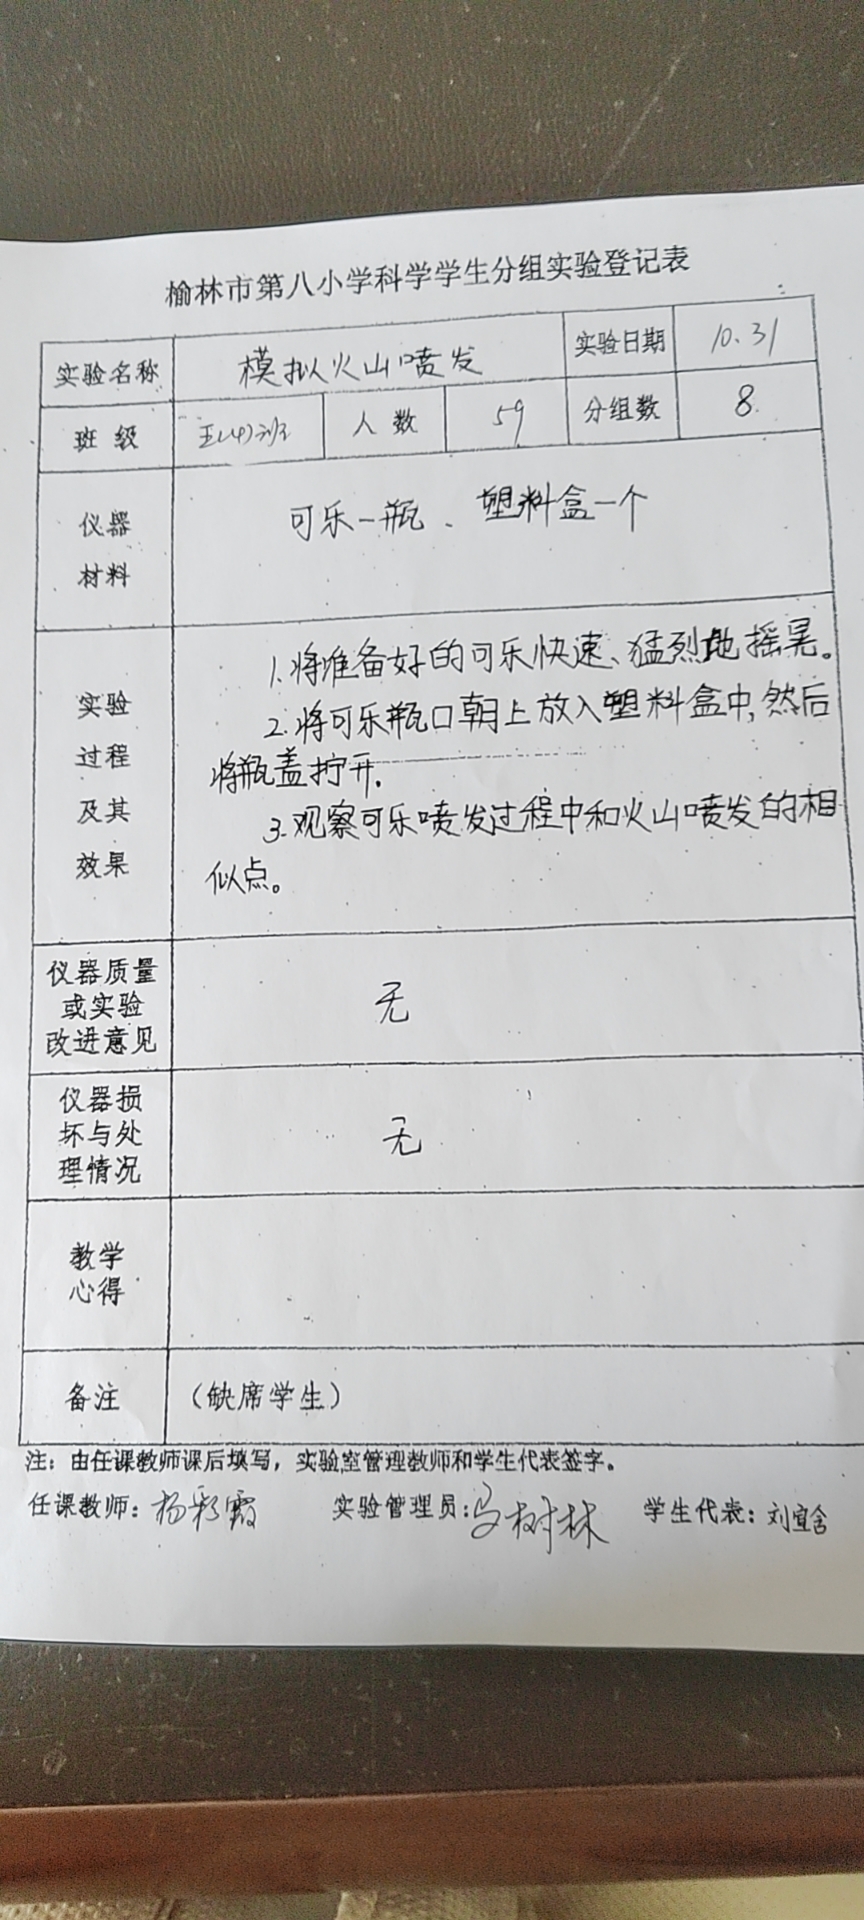 榆林市第八小学科学学生分组实验登记表
实验名称 模拟火山喷发 实验日期 10.31
班级 五(4)班 人数 59 分组数 8
仪器
材料
可乐一瓶、塑料盒一个
实验
过程
及其
效果
1.将准备好的可乐快速、猛烈地摇晃。
2.将可乐瓶口朝上放入塑料盒中,然后
将瓶盖拧开.
3.观察可乐喷发过程中和火山喷发的相
似点。
仪器质量
或实验
改进意见
无
仪器损
坏与处
理情况
无
教学
心得
备注 (缺席学生)
注：由任课教师课后填写，实验室管理教师和学生代表签字。
任课教师：杨彩霞 实验管理员: 树林 学生代表：刘宜